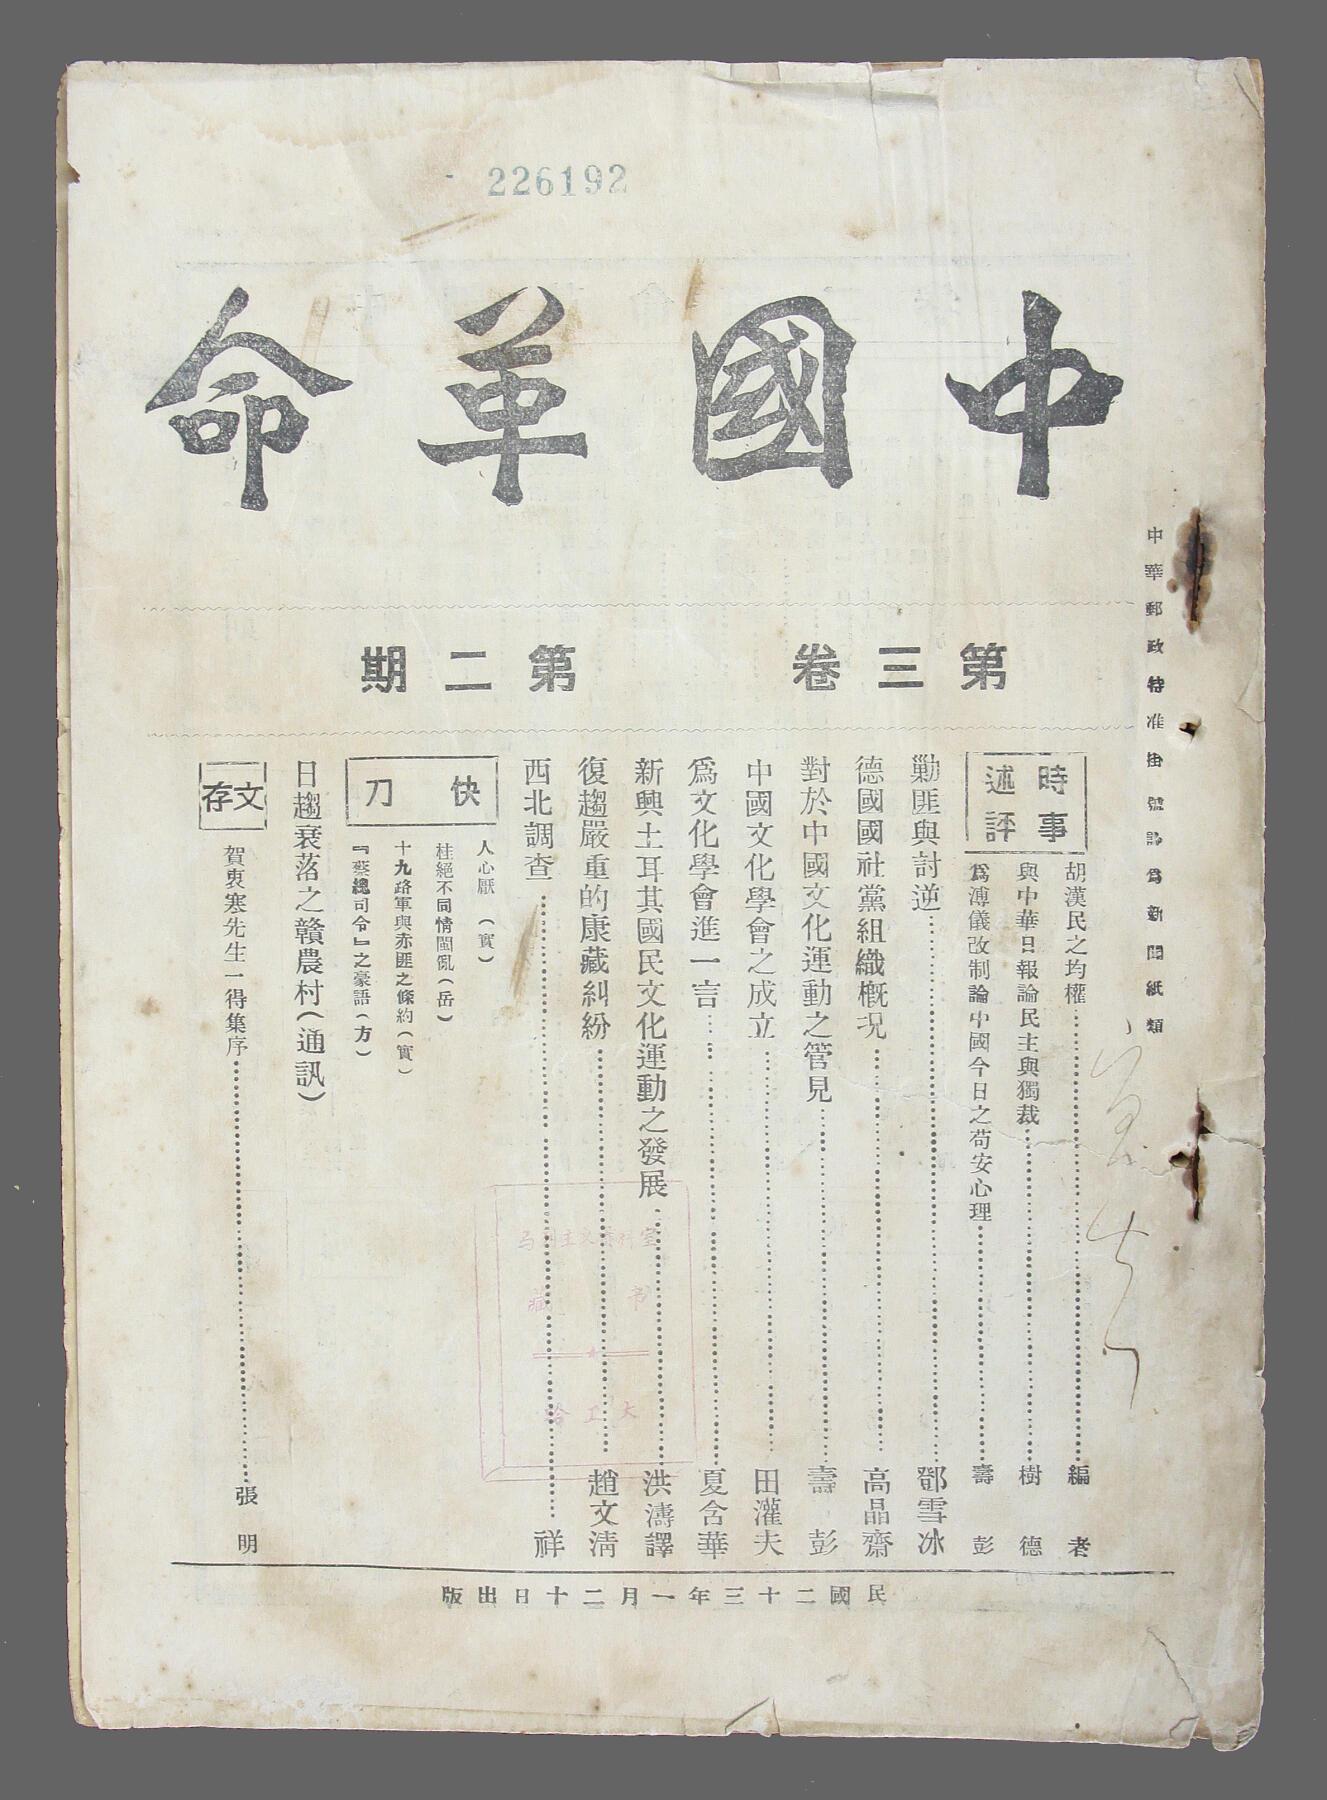 226192
中國革命
第三卷 第二期
中華郵政特准掛號認爲新聞紙類
時事述評
胡漢民之均權 編者
與中華日報論民主與獨裁 樹德
爲溥儀改制論中國今日之苟安心理 壽彭
勦匪與討逆 鄧雪冰
德國國社黨組織概况 高晶齋
對於中國文化運動之管見 壽彭
中國文化學會之成立 田灌夫
爲文化學會進一言 夏含華
新興土耳其國民文化運動之發展 洪濤譯
復趨嚴重的康藏糾紛 趙文清
西北調查 祥
快刀
人心厭（實）
桂絕不同情閩亂（岳）
十九路軍與赤匪之條約（實）
『蔡總司令』之豪語（方）
日趨衰落之贛農村（通訊）
文存
賀衷寒先生一得集序 張明
民國二十三年一月二十日出版
馬列主义資料室
藏 书
哈工大